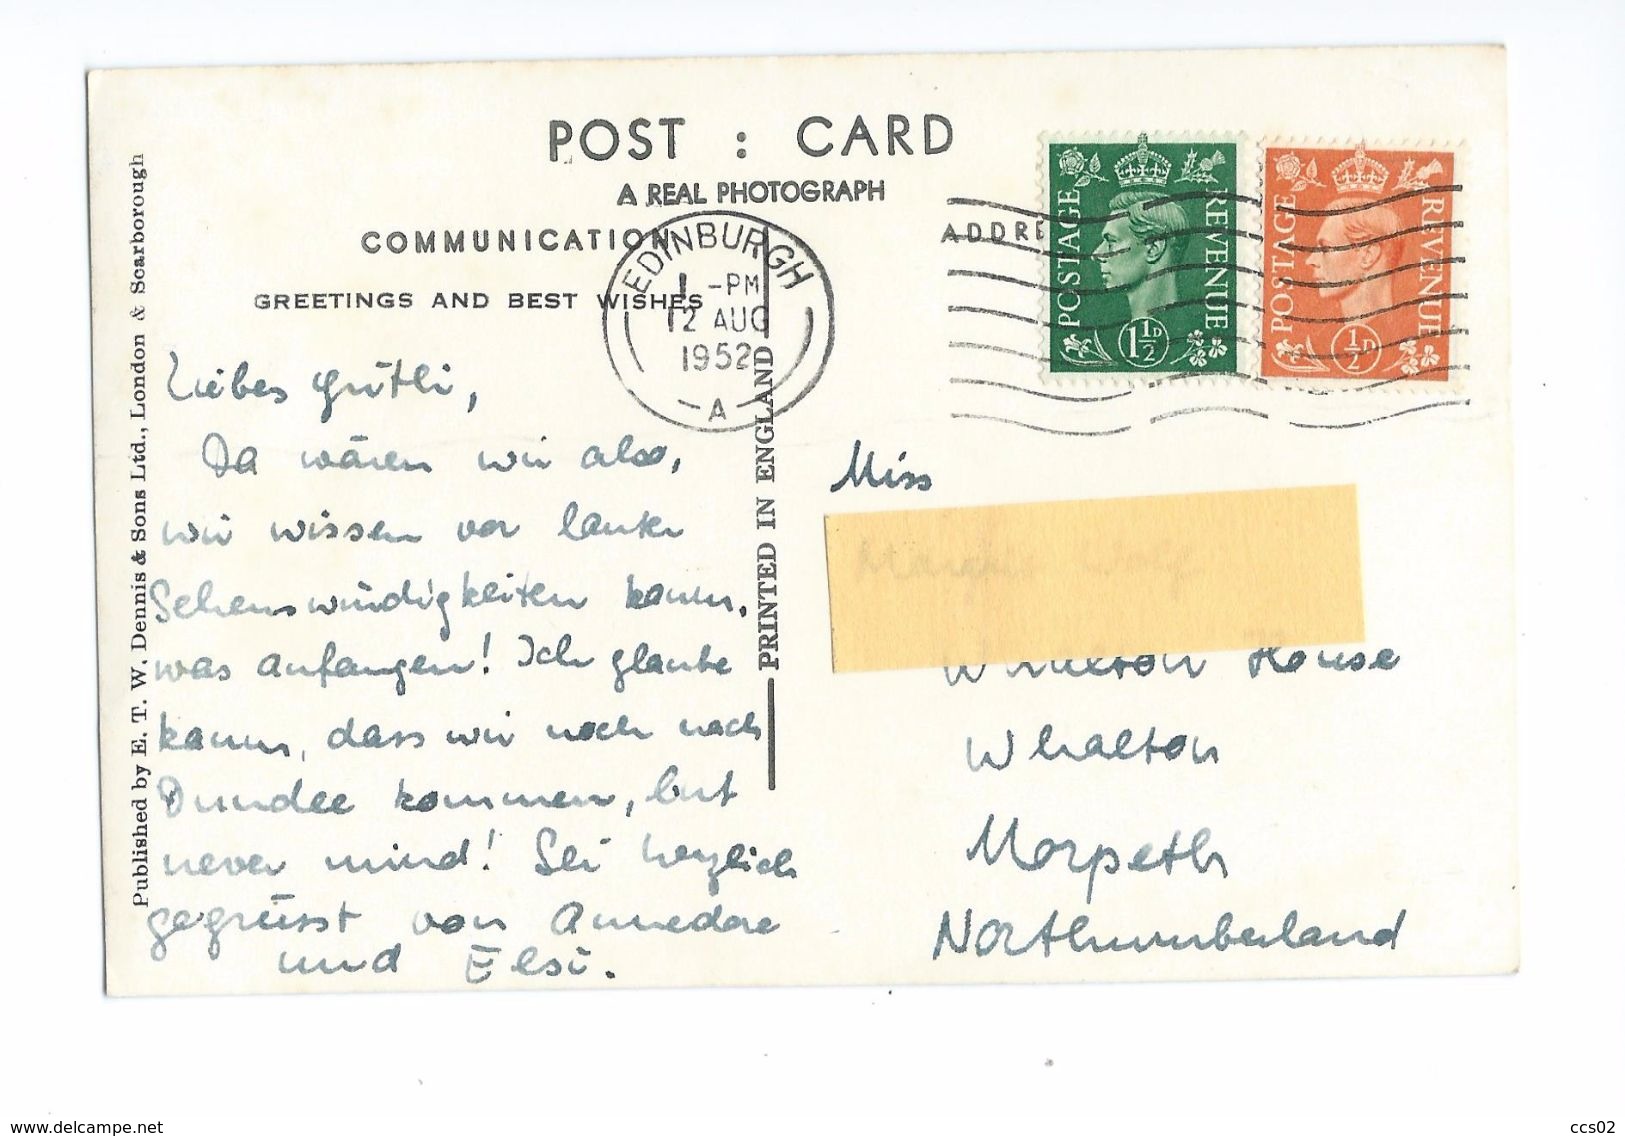 POST : CARD
A REAL PHOTOGRAPH
COMMUNICATION
ADDRE
GREETINGS AND BEST WISHES
EDINBURGH
1 -PM
12 AUG
1952
A
POSTAGE REVENUE
1½D
POSTAGE REVENUE
½D
Published by E. T. W. Dennis & Sons Ltd., London & Scarborough
PRINTED IN ENGLAND
Liebes Grütli,
Da wären wir also,
wir wissen vor lauter
Sehenswürdigkeiten kaum,
was anfangen! Ich glaube
kaum, dass wir noch nach
Dundee kommen, but
never mind! Sei herzlich
gegrüsst von Annedore
und Elsi.
Miss
Whalton House
Whalton
Morpeth
Northumberland
www.delcampe.net
ccs02